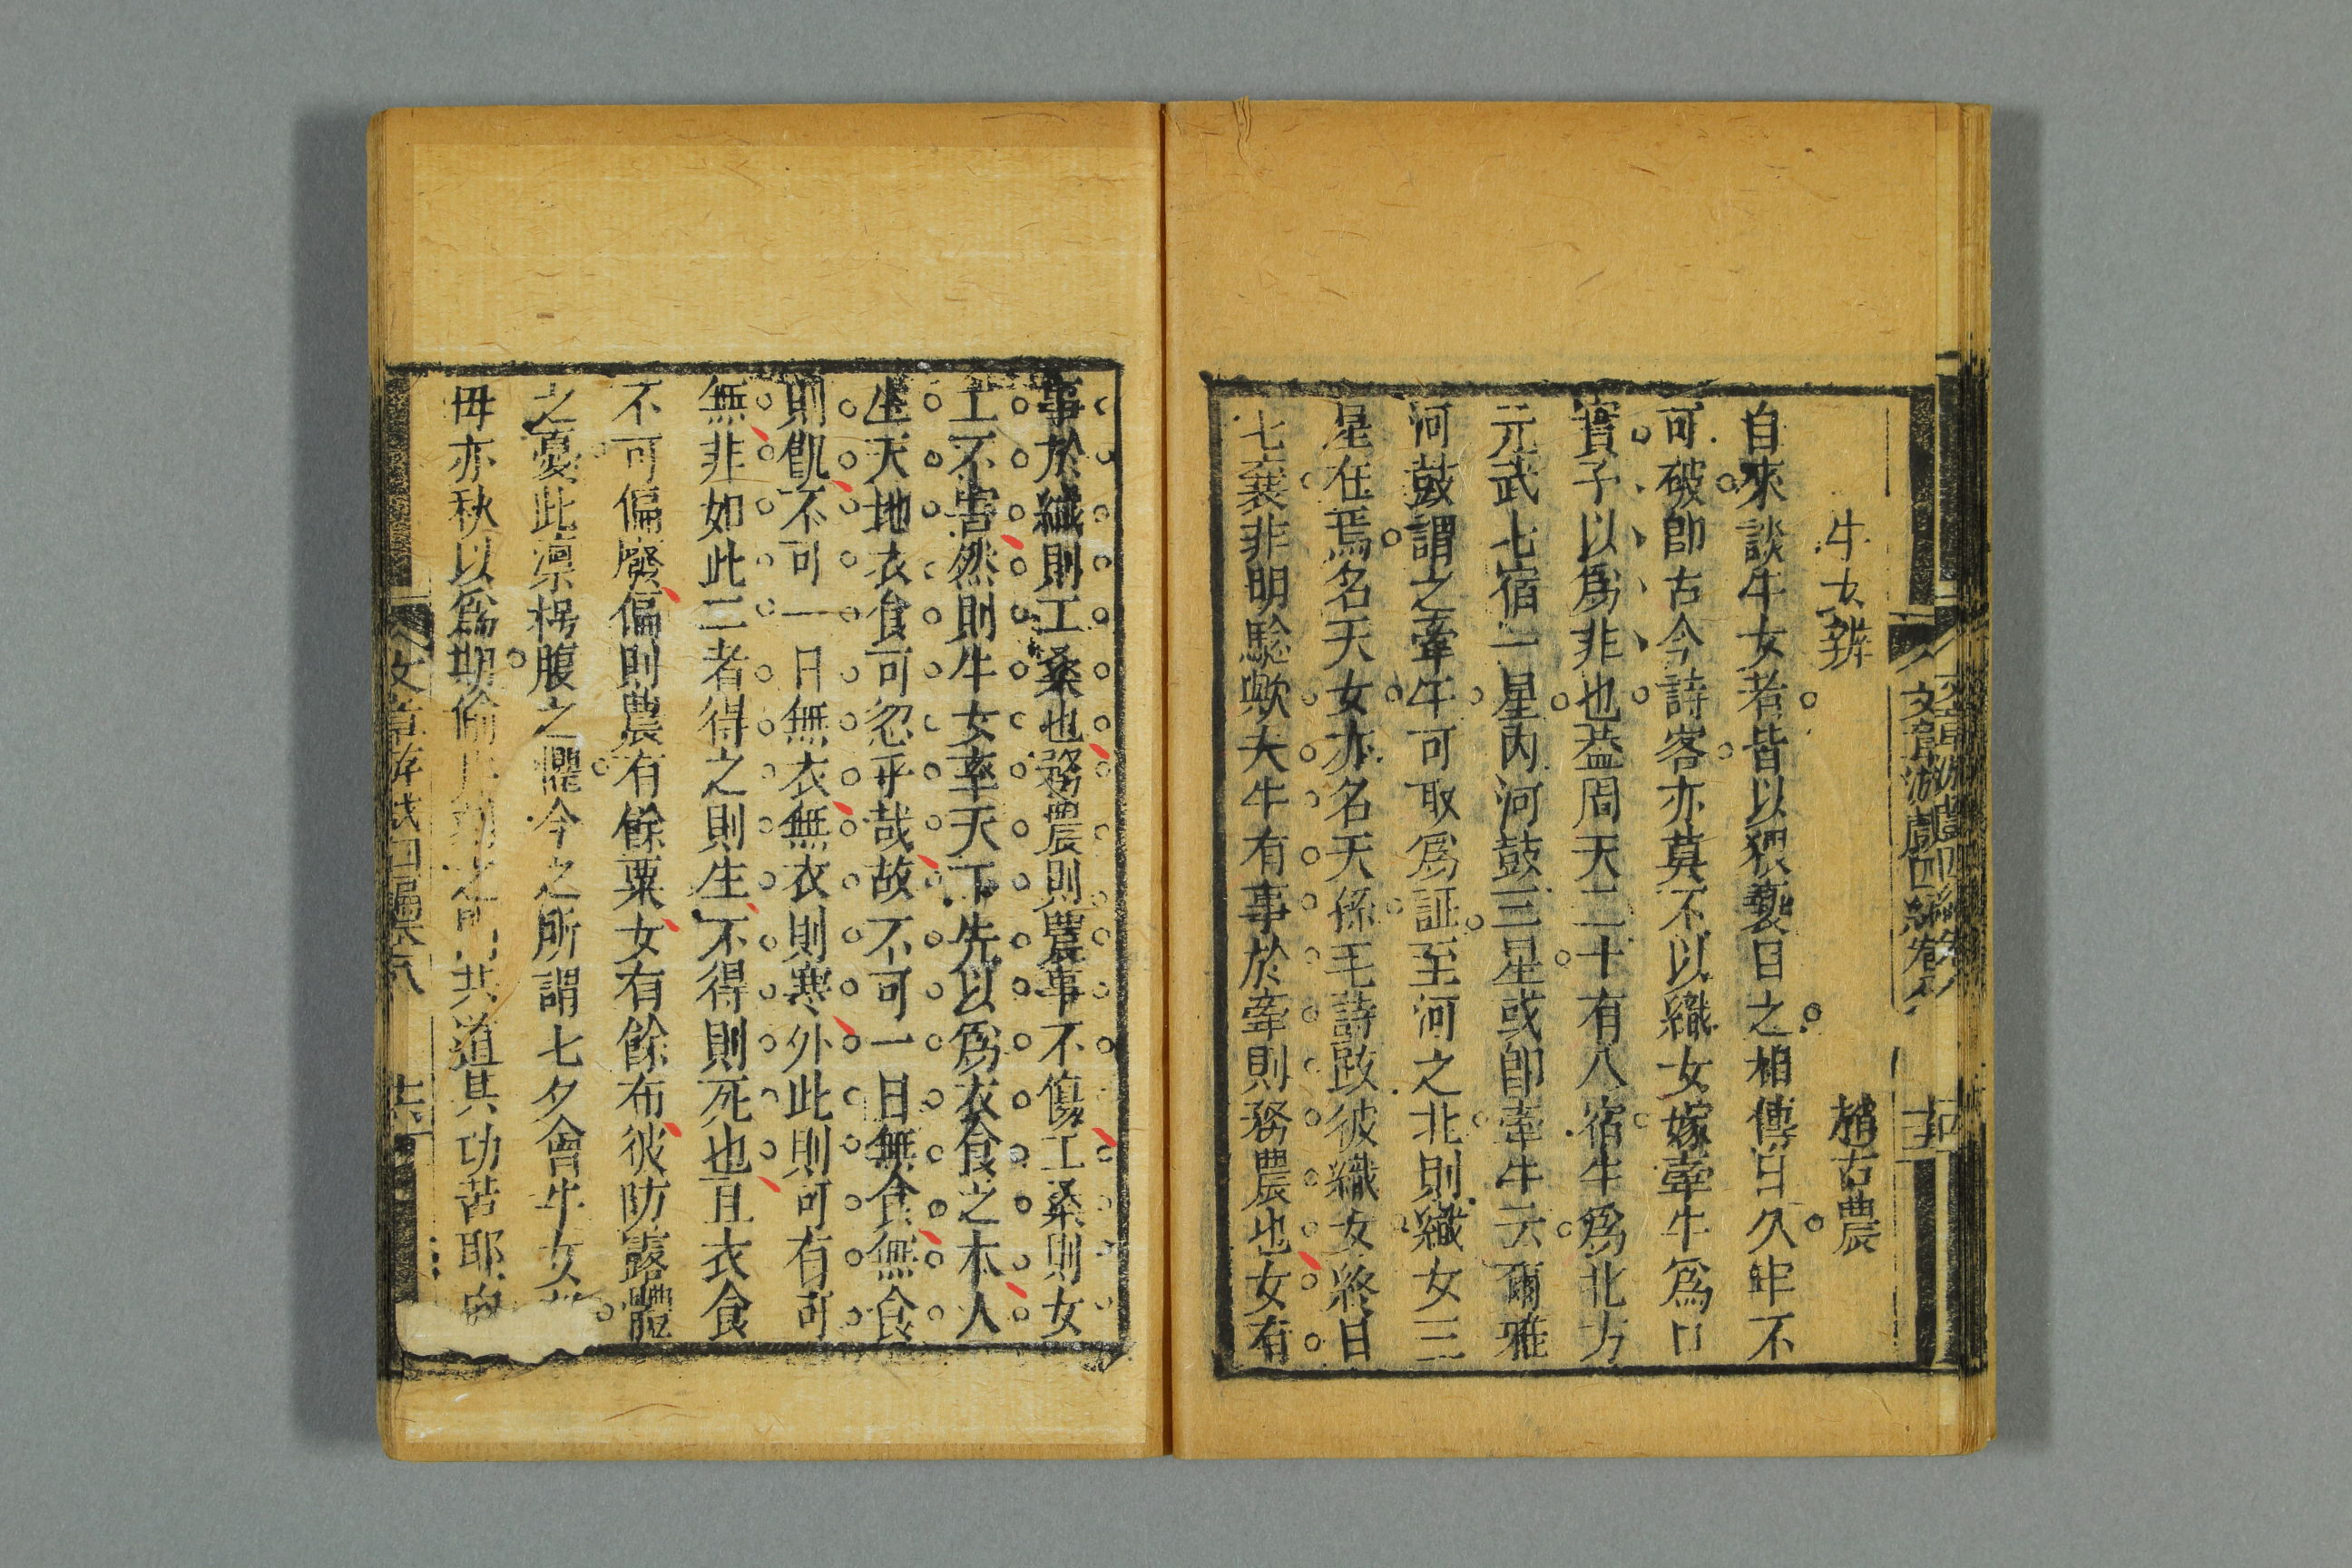 文章游戲四編卷八
牛女辨
趙古農
自來談牛女者皆以猥褻目之相傳日久牢不
可破卽古今詩客亦莫不以織女嫁牽牛爲口
實予以爲非也葢周天二十有八宿牛爲北方
元武七宿一星內河鼓三星或卽牽牛云爾雅
河鼓謂之牽牛可取爲証至河之北則織女三
星在焉名天女亦名天孫毛詩跂彼織女終日
七襄非明騐歟夫牛有事於牽則務農也女有
事於織則工桑也務農則農事不傷工桑則女
工不害然則牛女率天下先以爲衣食之本人
生天地衣食可忽乎哉故不可一日無食無食
則飢不可一日無衣無衣則寒外此則可有可
無非如此二者得之則生不得則死也且衣食
不可偏廢偏則農有餘粟女有餘布彼防露體
之憂此凛枵腹之懼今之所謂七夕會牛女
毋亦秋以爲期偷共道其功苦耶
文章游戲四編卷八